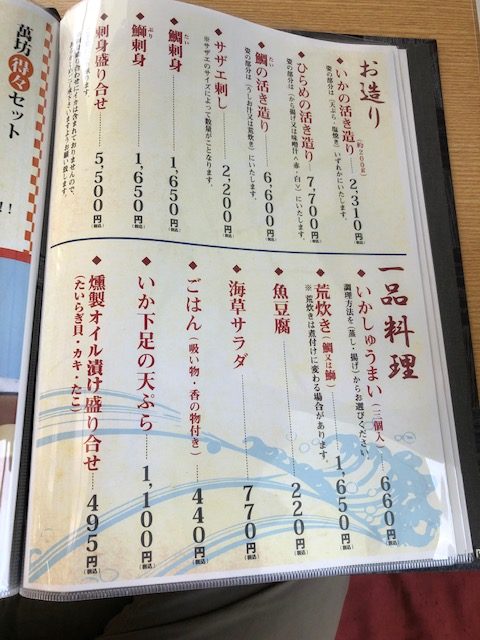 お造り
◆いかの活き造り(約260g) 2,310円(税込)
姿の部分は(天ぷら・塩焼き)いずれかにいたします。
◆ひらめの活き造り 7,700円(税込)
姿の部分は(から揚げ又は味噌汁〈赤・白〉)にいたします。
◆鯛の活き造り 6,600円(税込)
たい
姿の部分は(うしお汁又は荒炊き)にいたします。
◆サザエ刺し 2,200円(税込)
※サザエのサイズによって数量がことなります。
◆鯛刺身 1,650円(税込)
たい
◆鰤刺身 1,650円(税込)
ぶり
◆刺身盛り合せ 5,500円(税込)
盛り合わせにイカは含まれておりませんので、
ますようお願い致します。
一品料理
◆いかしゅうまい(三個入) 660円(税込)
調理方法を(蒸し・揚げ)からお選びください。
◆荒炊き(鯛又は鰤) 1,650円(税込)
※荒炊きは煮付けに変わる場合があります。
◆魚豆腐 220円(税込)
◆海草サラダ 770円(税込)
◆ごはん(吸い物・香の物付き) 440円(税込)
◆いか下足の天ぷら 1,100円(税込)
◆燻製オイル漬け盛り合せ 495円(税込)
(たいらぎ貝・カキ・たこ)
萬坊得々セット
!!